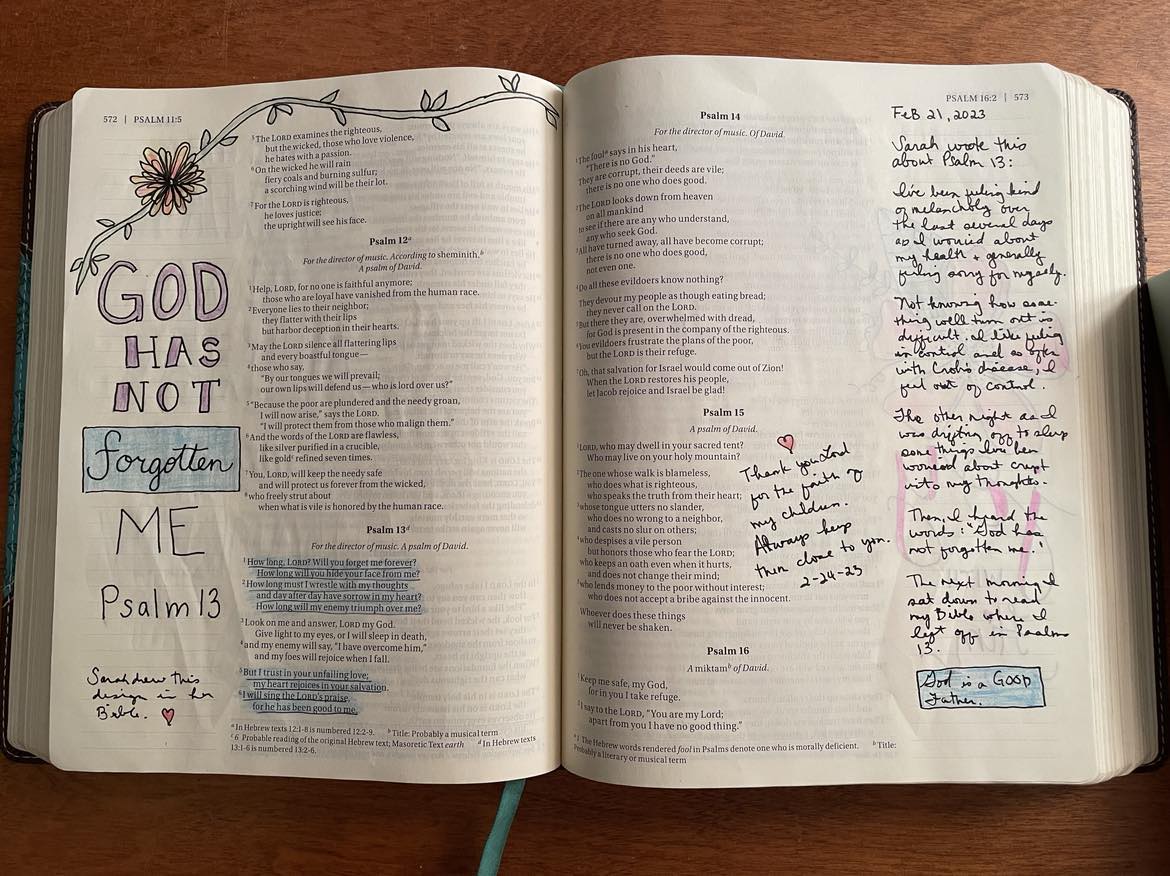 572 | PSALM 11:5
⁵The LORD examines the righteous,
but the wicked, those who love violence,
he hates with a passion.
⁶On the wicked he will rain
fiery coals and burning sulfur;
a scorching wind will be their lot.
⁷For the LORD is righteous,
he loves justice;
the upright will see his face.
Psalm 12ᵃ
For the director of music. According to sheminith.ᵇ
A psalm of David.
¹Help, LORD, for no one is faithful anymore;
those who are loyal have vanished from the human race.
²Everyone lies to their neighbor;
they flatter with their lips
but harbor deception in their hearts.
³May the LORD silence all flattering lips
and every boastful tongue—
⁴those who say,
"By our tongues we will prevail;
our own lips will defend us — who is lord over us?"
⁵"Because the poor are plundered and the needy groan,
I will now arise," says the LORD.
"I will protect them from those who malign them."
⁶And the words of the LORD are flawless,
like silver purified in a crucible,
like goldᶜ refined seven times.
⁷You, LORD, will keep the needy safe
and will protect us forever from the wicked,
⁸who freely strut about
when what is vile is honored by the human race.
Psalm 13ᵈ
For the director of music. A psalm of David.
¹How long, LORD? Will you forget me forever?
How long will you hide your face from me?
²How long must I wrestle with my thoughts
and day after day have sorrow in my heart?
How long will my enemy triumph over me?
³Look on me and answer, LORD my God.
Give light to my eyes, or I will sleep in death,
⁴and my enemy will say, "I have overcome him,"
and my foes will rejoice when I fall.
⁵But I trust in your unfailing love;
my heart rejoices in your salvation.
⁶I will sing the LORD's praise,
for he has been good to me.
ᵃ In Hebrew texts 12:1-8 is numbered 12:2-9. ᵇ Title: Probably a musical term
ᶜ 6 Probable reading of the original Hebrew text; Masoretic Text earth ᵈ In Hebrew texts
13:1-6 is numbered 13:2-6.
GOD
HAS
NOT
forgotten
ME
Psalm 13
Sarah drew this
design in her
Bible.
PSALM 16:2 | 573
Psalm 14
For the director of music. Of David.
¹The foolᵃ says in his heart,
"There is no God."
They are corrupt, their deeds are vile;
there is no one who does good.
²The LORD looks down from heaven
on all mankind
to see if there are any who understand,
any who seek God.
³All have turned away, all have become corrupt;
there is no one who does good,
not even one.
⁴Do all these evildoers know nothing?
They devour my people as though eating bread;
they never call on the LORD.
⁵But there they are, overwhelmed with dread,
for God is present in the company of the righteous.
⁶You evildoers frustrate the plans of the poor,
but the LORD is their refuge.
⁷Oh, that salvation for Israel would come out of Zion!
When the LORD restores his people,
let Jacob rejoice and Israel be glad!
Psalm 15
A psalm of David.
¹LORD, who may dwell in your sacred tent?
Who may live on your holy mountain?
²The one whose walk is blameless,
who does what is righteous,
who speaks the truth from their heart;
³whose tongue utters no slander,
who does no wrong to a neighbor,
and casts no slur on others;
⁴who despises a vile person
but honors those who fear the LORD;
who keeps an oath even when it hurts,
and does not change their mind;
⁵who lends money to the poor without interest;
who does not accept a bribe against the innocent.
Whoever does these things
will never be shaken.
Psalm 16
A miktamᵇ of David.
¹Keep me safe, my God,
for in you I take refuge.
²I say to the LORD, "You are my Lord;
apart from you I have no good thing."
ᵃ 1 The Hebrew words rendered fool in Psalms denote one who is morally deficient. ᵇ Title:
Probably a literary or musical term
Thank you Lord
for the faith of
my children.
Always keep
them close to you.
2-24-23
FeB 21, 2023
Sarah wrote this
about Psalm 13:
I've been feeling kind
of melancholy over
the last several days
as I worried about
my health + generally
feeling sorry for myself.
Not knowing how some-
thing will turn out is
difficult. I like feeling
in control and so often
with Crohn's disease, I
feel out of control.
The other night as I
was drifting off to sleep
some things I've been
worried about crept
into my thoughts.
Then, I heard the
words: "God has
not forgotten me."
The next morning I
sat down to read
my Bible where I
left off in Psalms
13.
God is a GOOD
Father.